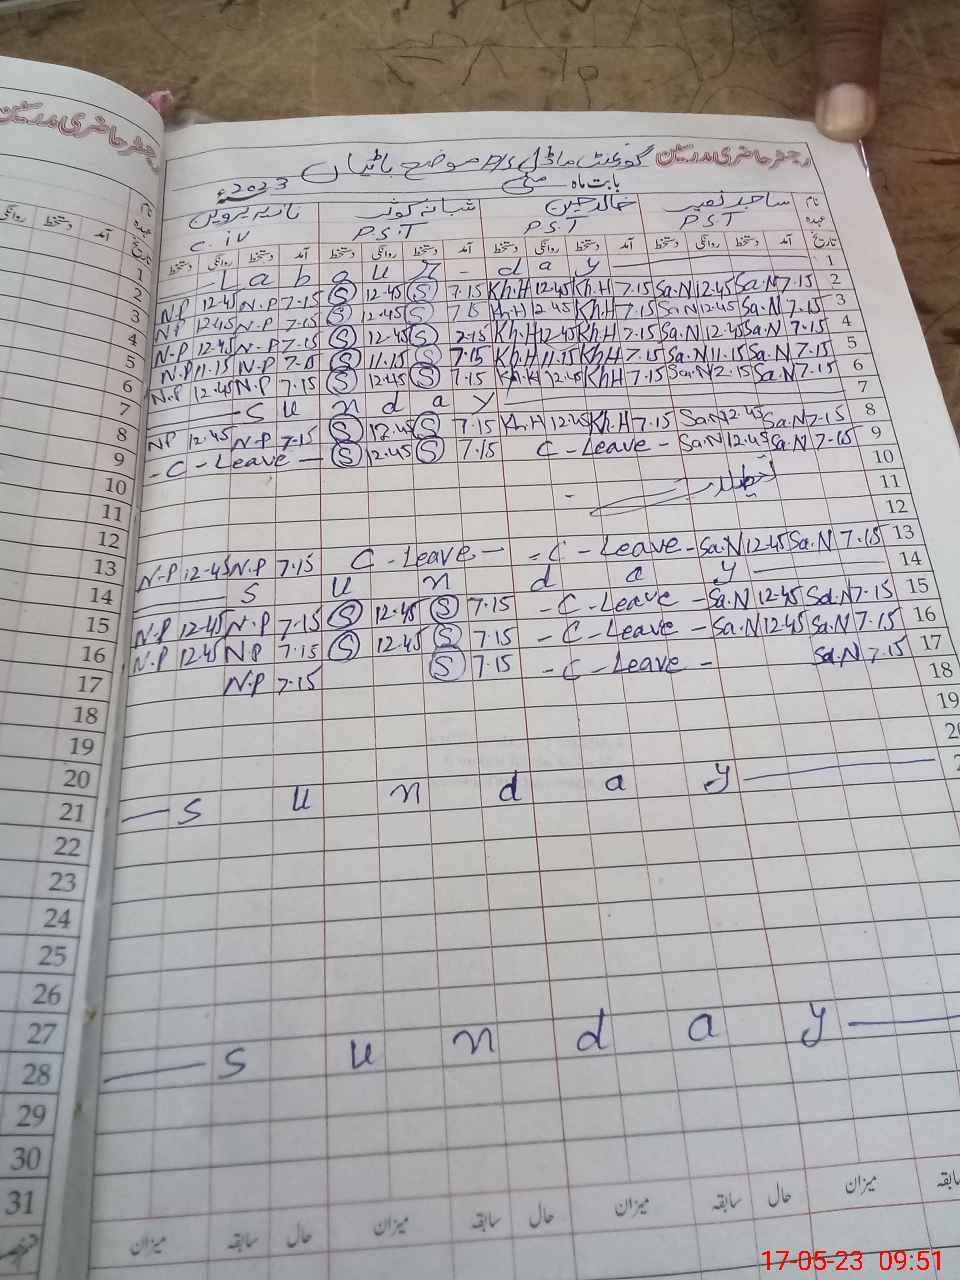 رجسٹر حاضری مدرسین گورنمنٹ ماڈل P/S موضع باٹیاں
بابت ماہ مئی 2023ء
نام خالد حسین شبانہ کوثر نازیہ پروین
عہدہ P.S.T P.S.T P.S.T C.iv
تاریخ آمد دستخط روانگی دستخط آمد دستخط روانگی دستخط آمد دستخط روانگی دستخط آمد دستخط روانگی دستخط
1 — L a b o u r - d a y —
2 N.P 12-45 N.P 7-15 S 12-45 S 7.15 Kh.H 12.45 Kh.H 7.15 Sa.N 12.45 Sa.N 7.15
3 N.P 12.45 N.P 7.15 S 12.45 S 7.15 Kh.H 12.45 Kh.H 7.15 Sa.N 12.45 Sa.N 7.15
4 N.P 12.45 N.P 7.15 S 12.45 S 7.15 Kh.H 12.45 Kh.H 7.15 Sa.N 12.45 Sa.N 7.15
5 N.P 11.15 N.P 7.15 S 11.15 S 7.15 Kh.H 11.15 Kh.H 7.15 Sa.N 11.15 Sa.N 7.15
6 N.P 12.45 N.P 7.15 S 12.45 S 7.15 Kh.H 12.45 Kh.H 7.15 Sa.N 12.15 Sa.N 7.15
7 — S u n d a y —
8 N.P 12.45 N.P 7.15 S 12.45 S 7.15 Kh.H 12.45 Kh.H 7.15 Sa.N 12.45 Sa.N 7.15
9 - C - Leave - S 12.45 S 7.15 C - Leave - Sa.N 12.45 Sa.N 7.15
10
11
12
13 N.P 12.45 N.P 7.15 C - Leave - - C - Leave - Sa.N 12.45 Sa.N 7.15
14 — S u n d a y —
15 N.P 12.45 N.P 7.15 S 12.45 S 7.15 - C - Leave - Sa.N 12.45 Sa.N 7.15
16 N.P 12.45 N.P 7.15 S 12.45 S 7.15 - C - Leave - Sa.N 12.45 Sa.N 7.15
17 N.P 7.15 S 7.15 - C - Leave - Sa.N 7.15
18
19
20
21 — S u n d a y —
22
23
24
25
26
27
28 — S u n d a y —
29
30
31
میزان سابقہ حال میزان سابقہ حال میزان سابقہ حال میزان سابقہ
17-05-23 09:51